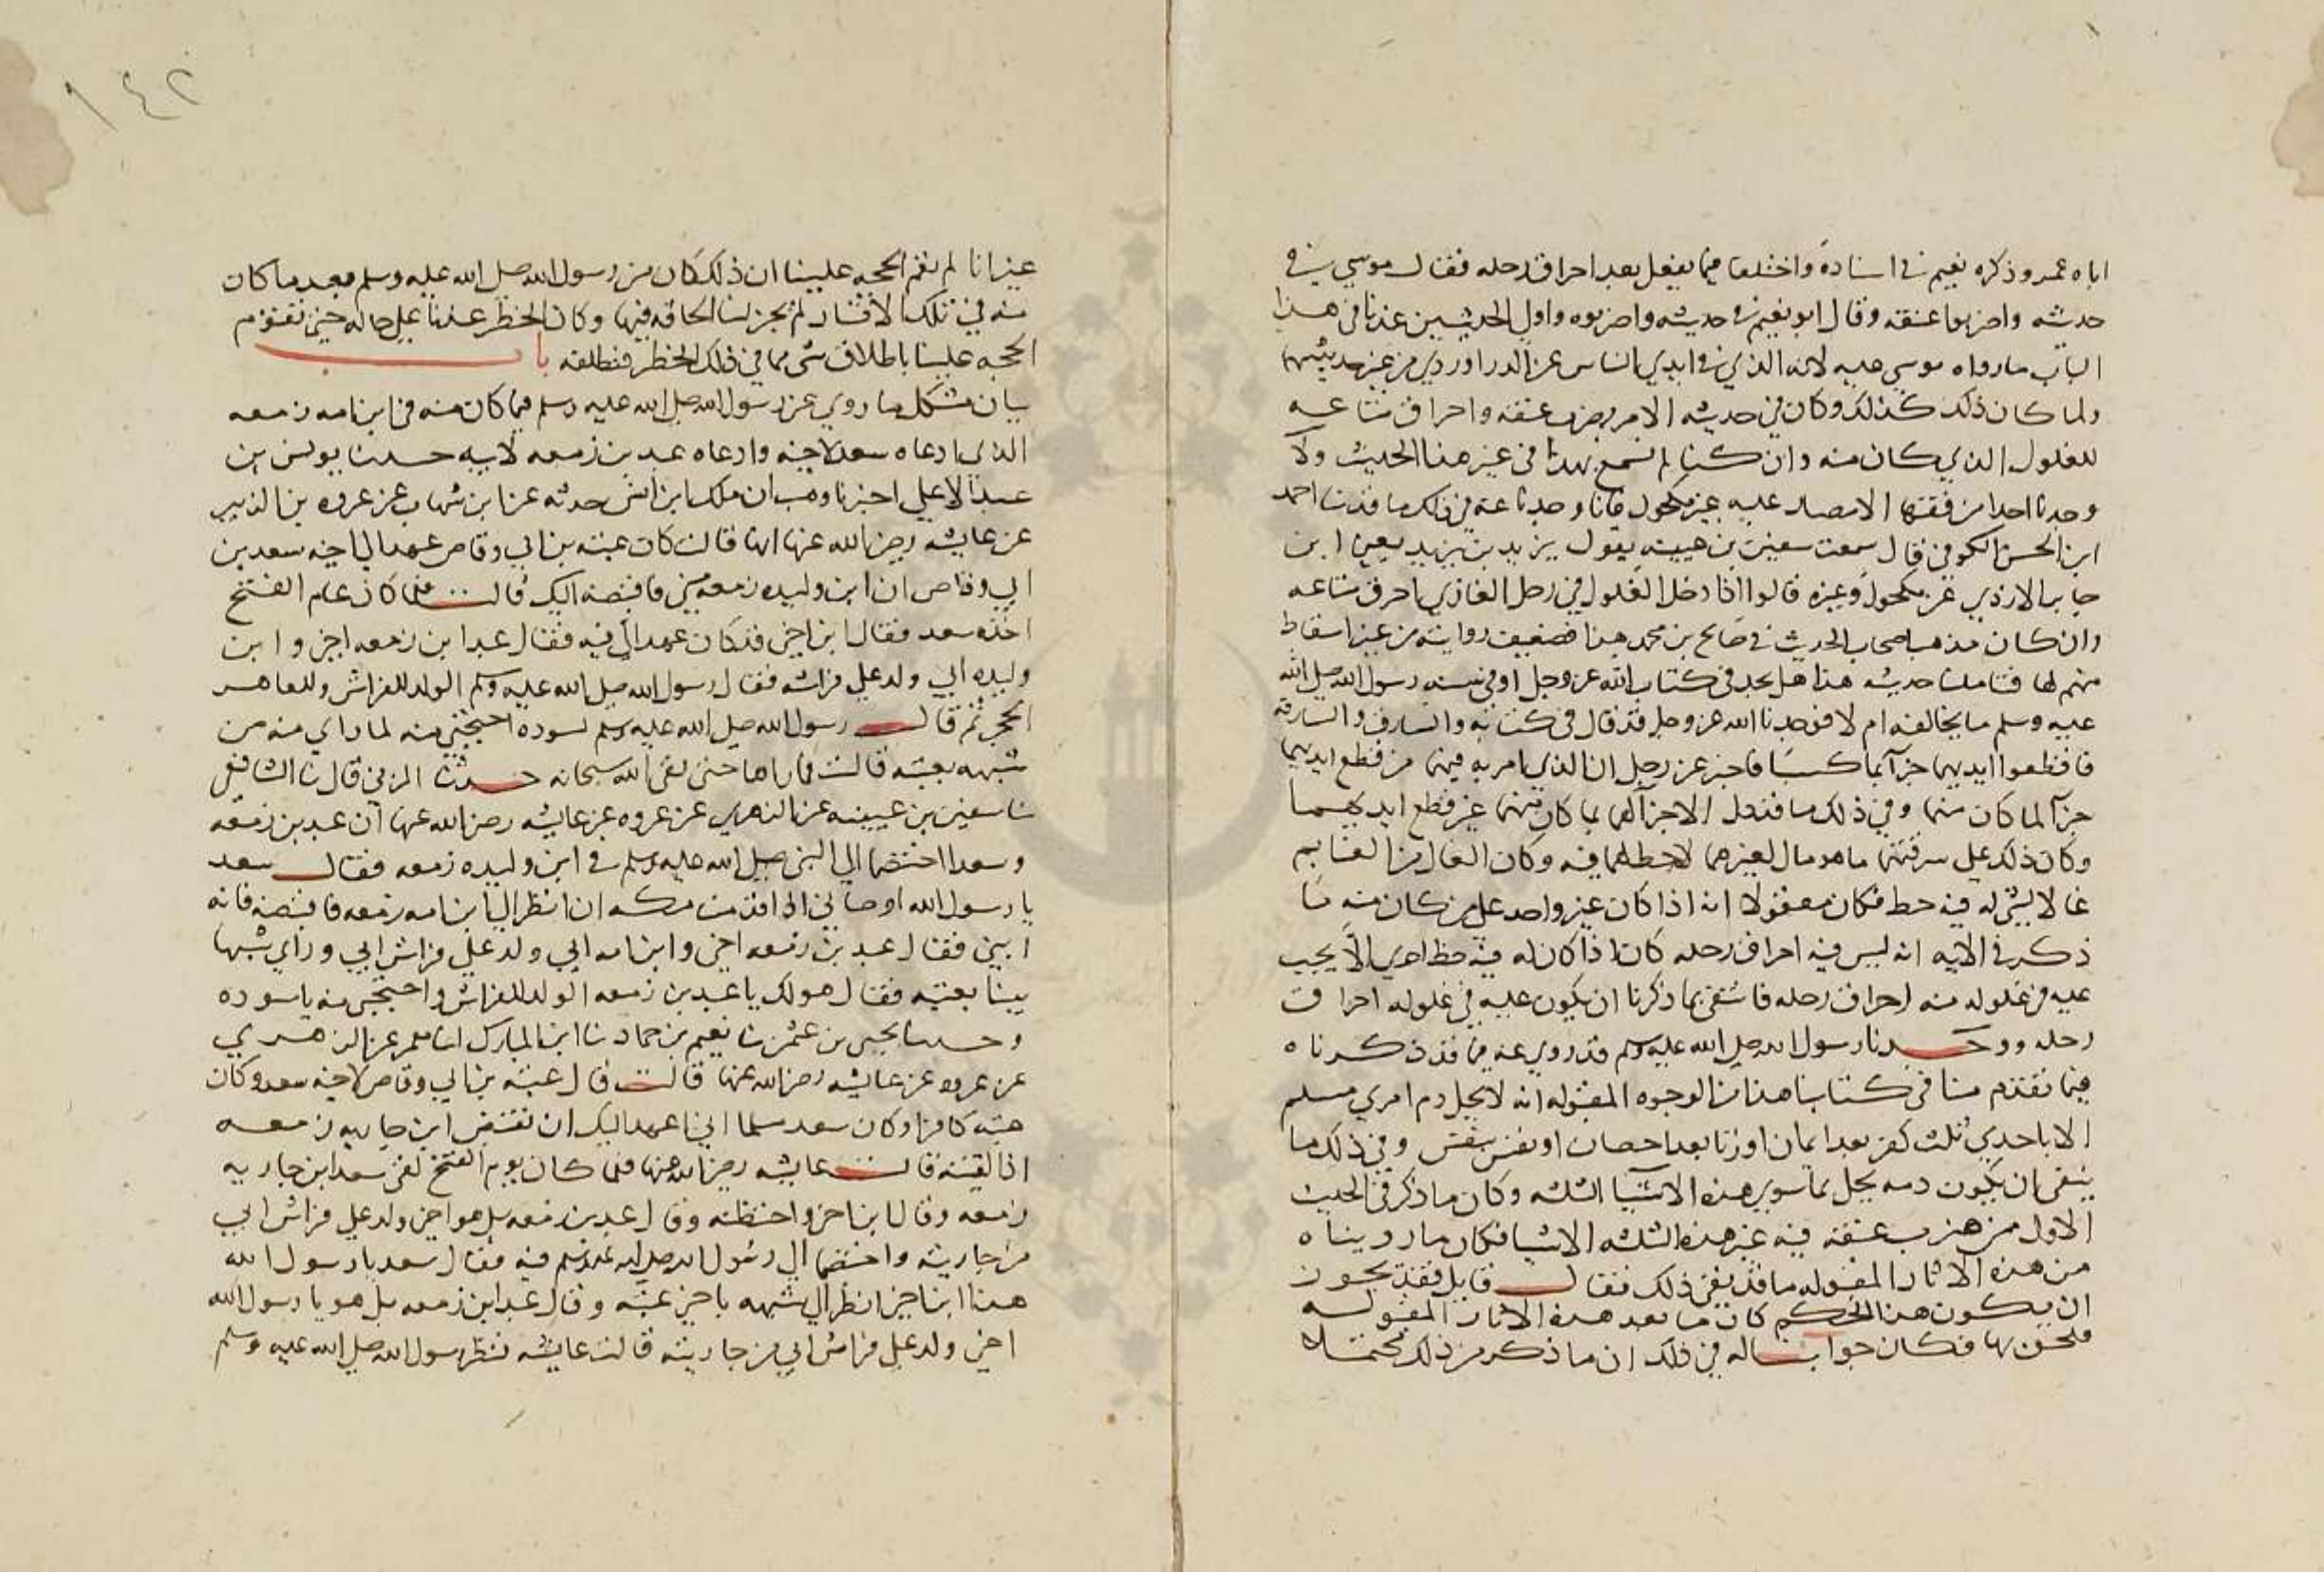 اباه عمر وذكره نعيم في اسناده واختلفا فيما يفعل بعد احراق رحله فقال موسى في
حديثه واضربوا عنقه وقال ابو نعيم في حديثه واضربوه واولى الحديثين عندنا في هذا
الباب ما رواه موسى عليه لانه الذي في ايدي الناس عن الدراوردي من غير حديثهما
ولما كان ذلك كذلك وكان في حديثه الامر بضرب عنقه واحراق متاعه
للغلول الذي كان منه وان كنا لم نسمع بهذا في غير هذا الحديث ولا
وجدنا احدا من فقها الامصار عليه غير مكحول فانا وجدنا عنه في ذلك ما قد ثنا احمد
ابن الحسن الكوفي قال سمعت سفين بن عيينه يقول يزيد بن يزيد يعني ابن
جابر الازدي عن مكحول وغيره قالوا اذا دخل الغلول في رحل الغازي احرق متاعه
وان كان مذهب اصحاب الحديث في صالح بن محمد هذا تضعيف روايته من غير اسقاط
منهم لها فتاملنا حديثه هذا هل نجد في كتاب الله عز وجل او في سنه رسول الله صلى الله
عليه وسلم ما يخالفه ام لا فوجدنا الله عز وجل قد قال في كتابه والسارق والسارقه
فاقطعوا ايديهما جزآ بما كسبا فاخبر عز وجل ان الذي امر به فيهما من قطع ايديهما
جزآ لما كان منهما وفي ذلك ما قد دل الا جزآ لهما بما كان منهما غير قطع ايديهما
وكان ذلك على سرقتهما ما هو مال لغيرهما لا حظ لهما فيه وكان الغال من الغنايم
غالا لشي له فيه حظ فكان معقولا انه اذا كان غير واجد على من كان منه ما
ذكر في الايه انه ليس فيه احراق رحله كان اذا كان له فيه حظ احرى الا يجب
عليه في غلوله منه احراق رحله فانتفى بما ذكرنا ان يكون عليه في غلوله احراق
رحله ووجدنا رسول الله صلى الله عليه وسلم قد روي عنه مما قد ذكرناه
فيما تقدم منا في كتابنا هذا من الوجوه المقبوله انه لا يحل دم امري مسلم
الا باحدي ثلث كفر بعد ايمان او زنا بعد احصان او نفس بنفس وفي ذلك ما
ينفي ان يكون دمه يحل بما سوى هذه الاشيا الثلثه وكان ما ذكر في الحديث
الاول من ضرب عنقه فيه غير هذه الثلثه الاشيا فكان ما رويناه
من هذه الاثار المقبوله ما قد نفى ذلك فقال قايل فقد يجوز
ان يكون هذا الحكم كان ما بعد هذه الاثار المقبوله
فلحق بها فكان جوابنا له في ذلك ان ما ذكر من ذلك محتملا
١٤٢
غير انا لم تقم الحجه علينا ان ذلك كان من رسول الله صلى الله عليه وسلم بعد ما كان
منه في تلك الاثار لم يجز لنا الحاقه فيها وكان الحظر عندنا على حاله حتى تقوم
الحجه علينا باطلاق شي مما في ذلك الحظر فنطلقه باب
بيان مشكل ما روي عن رسول الله صلى الله عليه وسلم فيما كان منه في ابن امه زمعه
الذي ادعاه سعد لاخيه وادعاه عبد بن زمعه لابيه حدثنا يونس بن
عبد الاعلي اخبرنا وهب ان ملك ابن انس حدثه عن ابن شهاب عن عروه بن الزبير
عن عايشه رضي الله عنها انها قالت كان عتبه بن ابي وقاص عهد الى اخيه سعد بن
ابي وقاص ان ابن وليده زمعه مني فاقبضه اليك قالت فلما كان عام الفتح
اخذه سعد فقال ابن اخي قد كان عهد الي فيه فقال عبد ابن زمعه اخي وابن
وليده ابي ولد على فراشه فقال رسول الله صلى الله عليه وسلم الولد للفراش وللعاهر
الحجر ثم قال رسول الله صلى الله عليه وسلم لسوده احتجبي منه لما راي منه من
شبهه بعتبه قالت فما راها حتى لقي الله سبحانه حدثنا المزني قال ثنا الشافعي
ثنا سفين بن عيينه عن الزهري عن عروه عن عايشه رضي الله عنها ان عبد بن زمعه
وسعدا اختصما الي النبي صلى الله عليه وسلم في ابن وليده زمعه فقال سعد
يا رسول الله اوصاني اخي اذا قدمت مكه ان انظر الي ابن امه زمعه فاقبضه فانه
ابني فقال عبد بن زمعه اخي وابن امه ابي ولد على فراش ابي وراي شبها
بينا بعتبه فقال هو لك يا عبد بن زمعه الولد للفراش واحتجبي منه يا سوده
وحدثنا يحيى بن عثمن ثنا نعيم بن حماد ثنا ابن المبارك انا معمر عن الزهري
عن عروه عن عايشه رضي الله عنها قالت قال عتبه بن ابي وقاص لاخيه سعد وكان
عتبه كافرا وكان سعد مسلما اني اعهد اليك ان تقبض ابن جاريه زمعه
اذا لقيته قالت عايشه رضي الله عنها فلما كان يوم الفتح لقى سعد ابن جاريه
زمعه وقال ابن اخي واحتضنه وقال عبد بن زمعه بل هو اخي ولد على فراش ابي
من جاريته واختصما الى رسول الله صلى الله عليه وسلم فيه فقال سعد يا رسول الله
هذا ابن اخي انظر الى شبهه باخي عتبه وقال عبد ابن زمعه بل هو يا رسول الله
اخي ولد على فراش ابي من جاريته قالت عايشه فنظر رسول الله صلى الله عليه وسلم